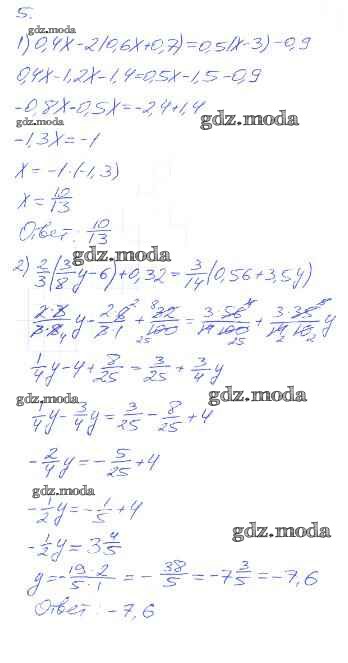 5.
gdz.moda
1) 0,4x-2(0,6x+0,7)=0,5(x-3)-0,9
0,4x-1,2x-1,4=0,5x-1,5-0,9
-0,8x-0,5x=-2,4+1,4
gdz.moda gdz.moda
-1,3x=-1
x=-1·(-1,3)
x=10/13
Ответ: 10/13
gdz.moda
2) 2/3(3/8y-6)+0,32=3/14(0,56+3,5y)
gdz.moda
2·3/3·8 4 y-2·6 2/3·1+8 32/100 25=3·56 4/14·100 25+3·35 5/14 2·10 2 y
1/4y-4+8/25=3/25+3/4y
gdz.moda gdz.moda
1/4y-3/4y=3/25-8/25+4
-2/4y=-5/25+4
gdz.moda
-1/2y=-1/5+4
gdz.moda
-1/2y=3 4/5
y=-19·2/5·1=-38/5=-7 3/5=-7,6
Ответ: -7,6
gdz.moda